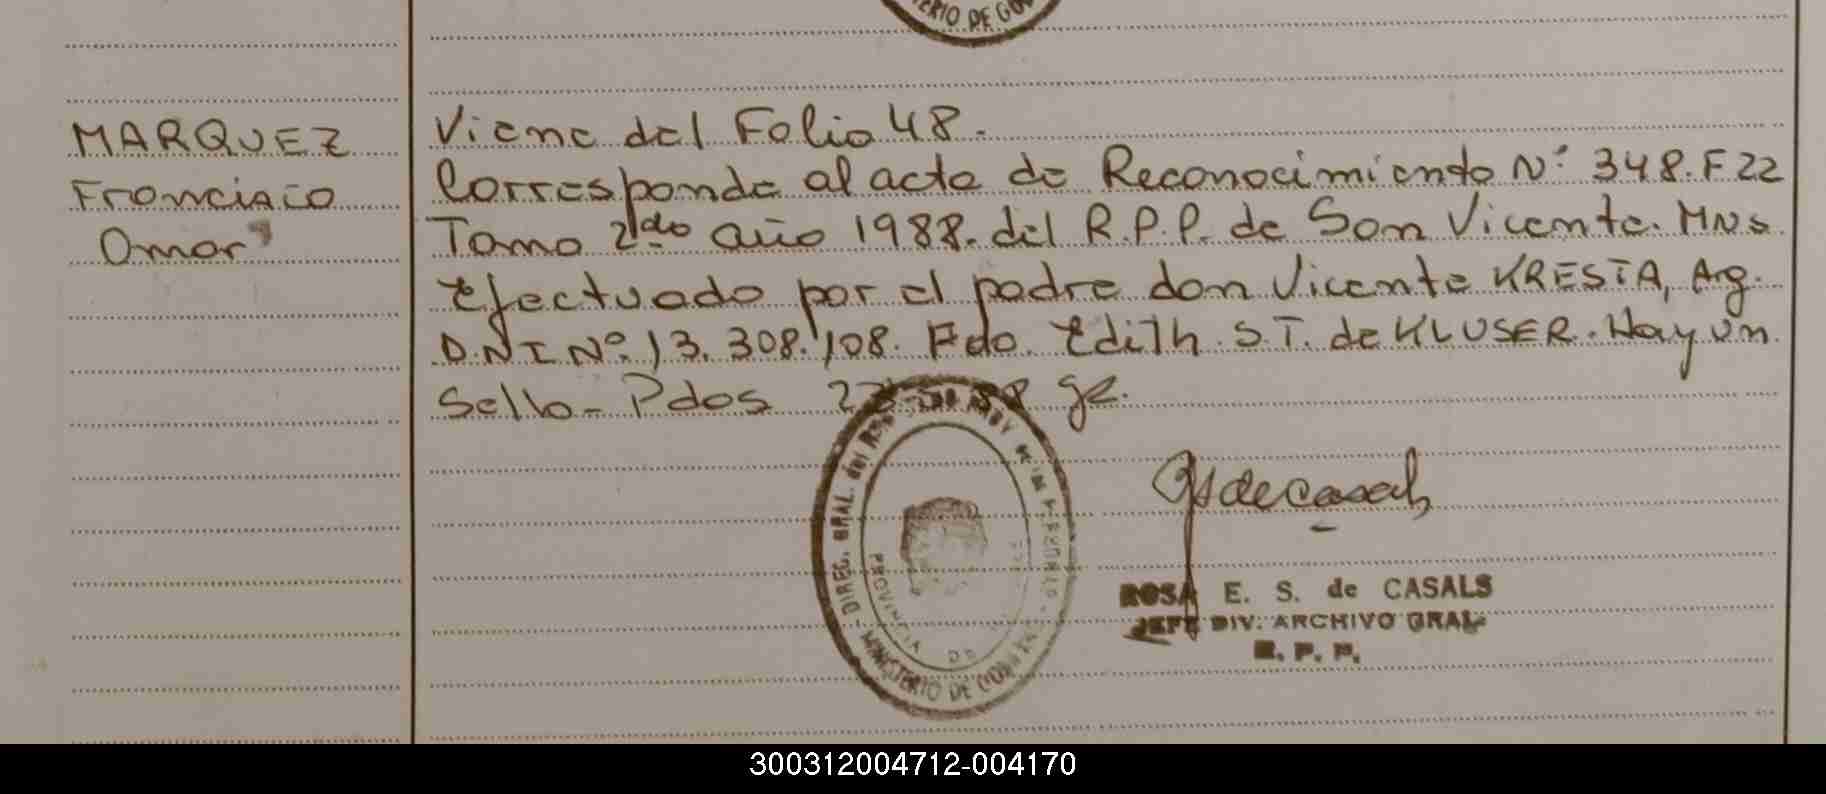 MARQUEZ
Francisco
Omar
Viene del Folio 48.
Corresponde al acta de Reconocimiento Nº 348. F 22
Tomo 2do año 1988. del R.P.P. de San Vicente. MNs
Efectuado por el padre don Vicente KRESTA, Arg.
D.N.I Nº. 13.308.108. Fdo. Edith. S.T. de KLUSER. Hay un
Sello - Pdos
DIREC. GRAL. del
PROVINCIA DE
MINISTERIO DE
ROSA E. S. de CASALS
JEFE DIV. ARCHIVO GRAL.
R. P. P.
300312004712-004170